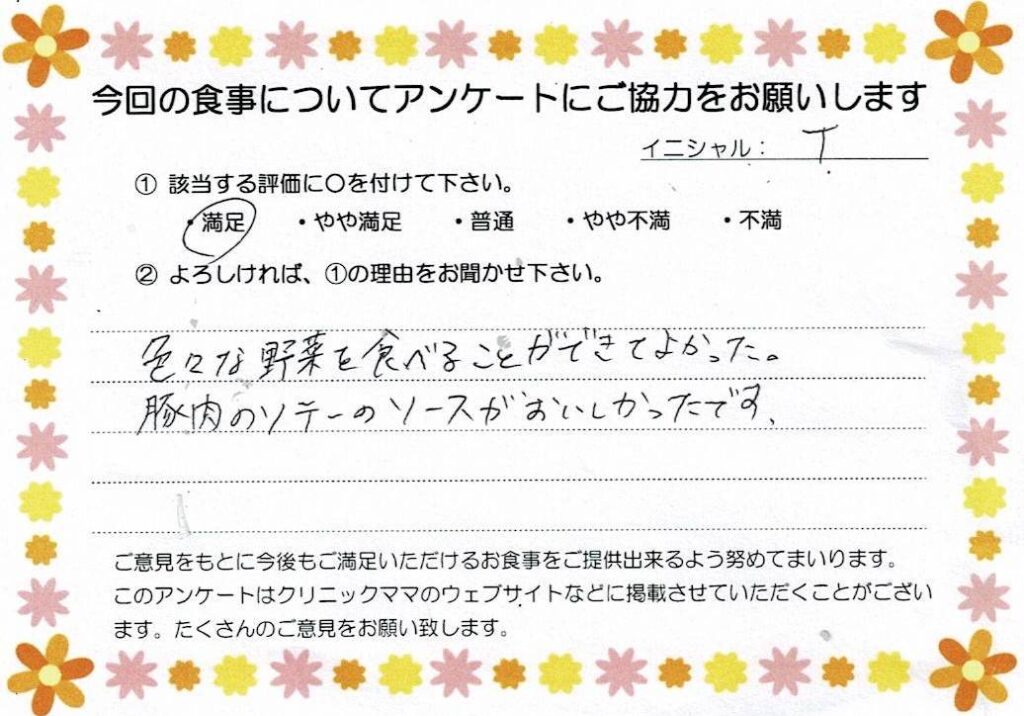 今回の食事についてアンケートにご協力をお願いします
イニシャル： T
① 該当する評価に〇を付けて下さい。
・満足 ・やや満足 ・普通 ・やや不満 ・不満
② よろしければ、①の理由をお聞かせ下さい。
色々な野菜を食べることができてよかった。
豚肉のソテーのソースがおいしかったです、
ご意見をもとに今後もご満足いただけるお食事をご提供出来るよう努めてまいります。
このアンケートはクリニックママのウェブサイトなどに掲載させていただくことがござい
ます。たくさんのご意見をお願い致します。